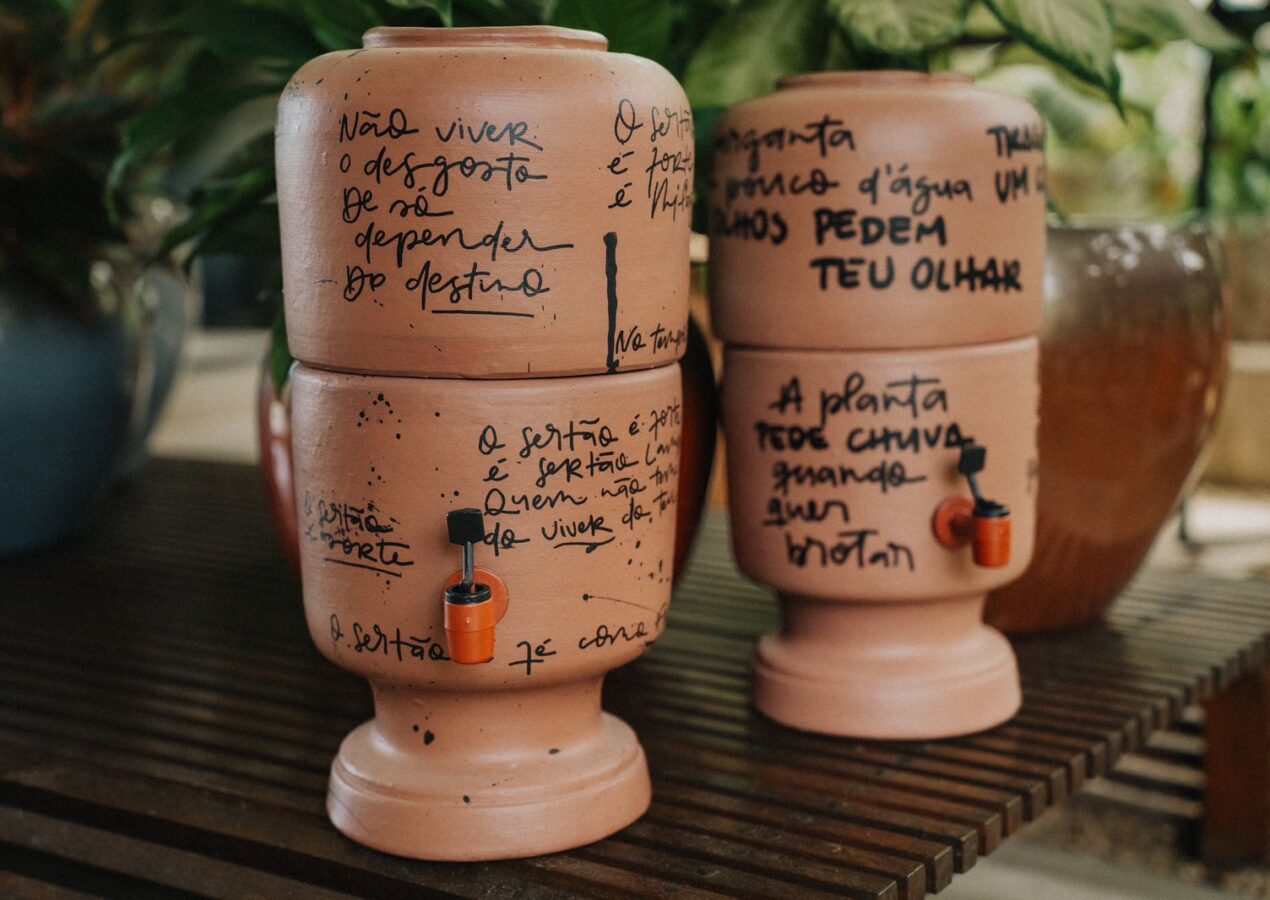 Não viver
o desgosto
De só
depender
Do destino
O sertã
é forte
é
No temp
O sertão é forte
é sertão
Quem não tem
do viver do
O sertão
é norte
O sertão já é como
arganta
pouco d'água
OLHOS PEDEM
TEU OLHAR
UM
A planta
PEDE CHUVA
quando
quer
brotar